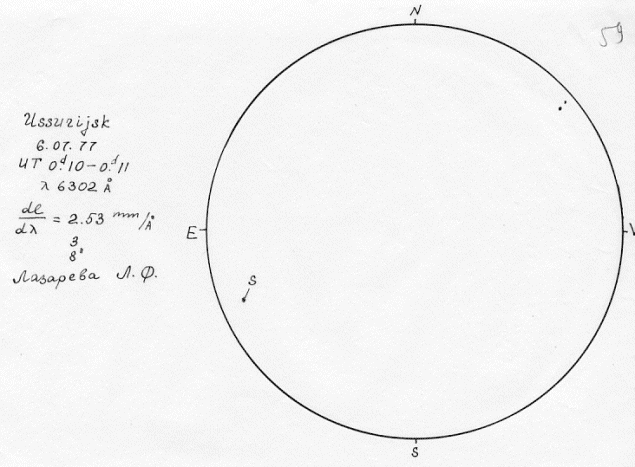 N
59
Ussurijsk
6.07.77
UT 0.ᵈ10–0.ᵈ11
λ 6302 Å
dl/dλ = 2.53 mm/Å
3
8"
Лазарева Л.Ф.
E
W
S
S